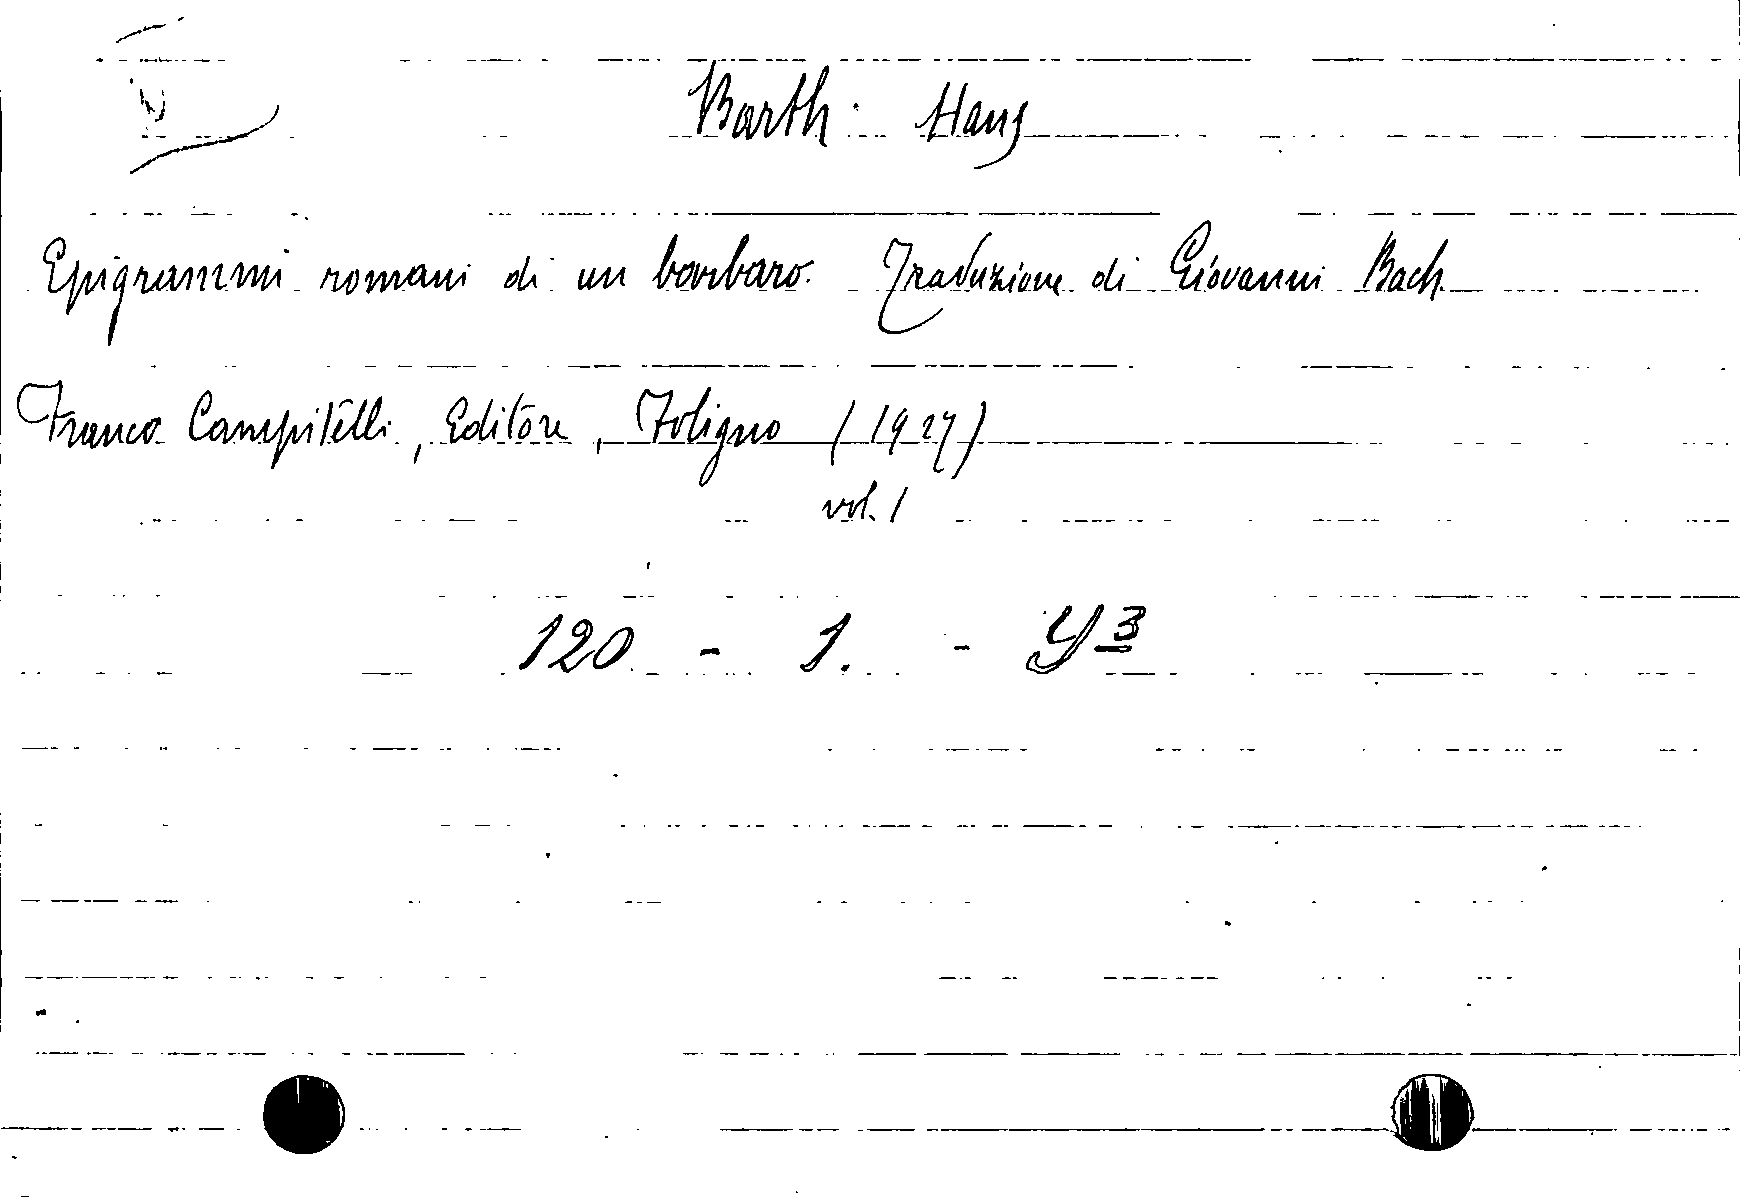 Barth. Hans
Epigrammi romani di un barbaro. Traduzione di Giovanni Bach
Franco Campitelli, Editore, Foligno (1927)
vol. 1
120 - 1. - Y 3